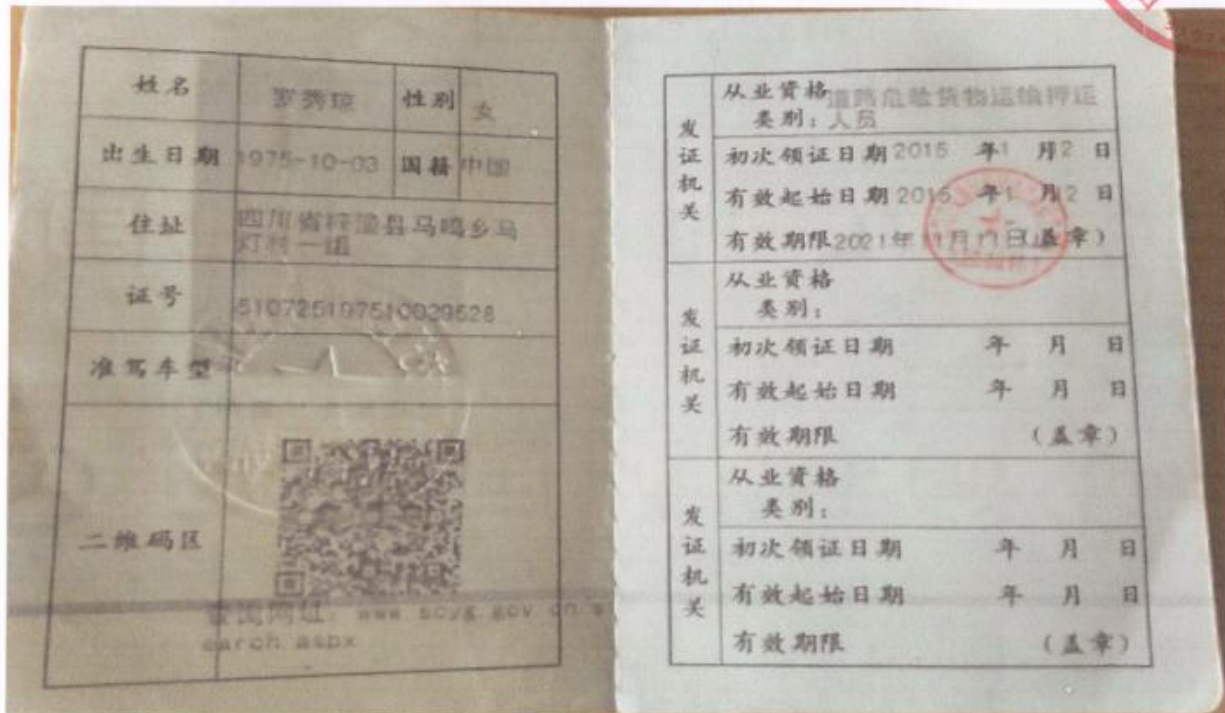 姓名 罗秀琼 性别 女
出生日期 1975-10-03 国籍 中国
住址 四川省梓潼县马鸣乡马
灯村一组
证号 510725197510029528
准驾车型
二维码区
查询网址: www.scyg.gov.cn s
earch.aspx
发证机关
从业资格 道路危险货物运输押运
类别: 人员
初次领证日期 2015 年1 月2 日
有效起始日期 2015 年1 月2 日
有效期限 2021年11月11日(盖章)
发证机关
从业资格
类别:
初次领证日期 年 月 日
有效起始日期 年 月 日
有效期限 (盖章)
发证机关
从业资格
类别:
初次领证日期 年 月 日
有效起始日期 年 月 日
有效期限 (盖章)